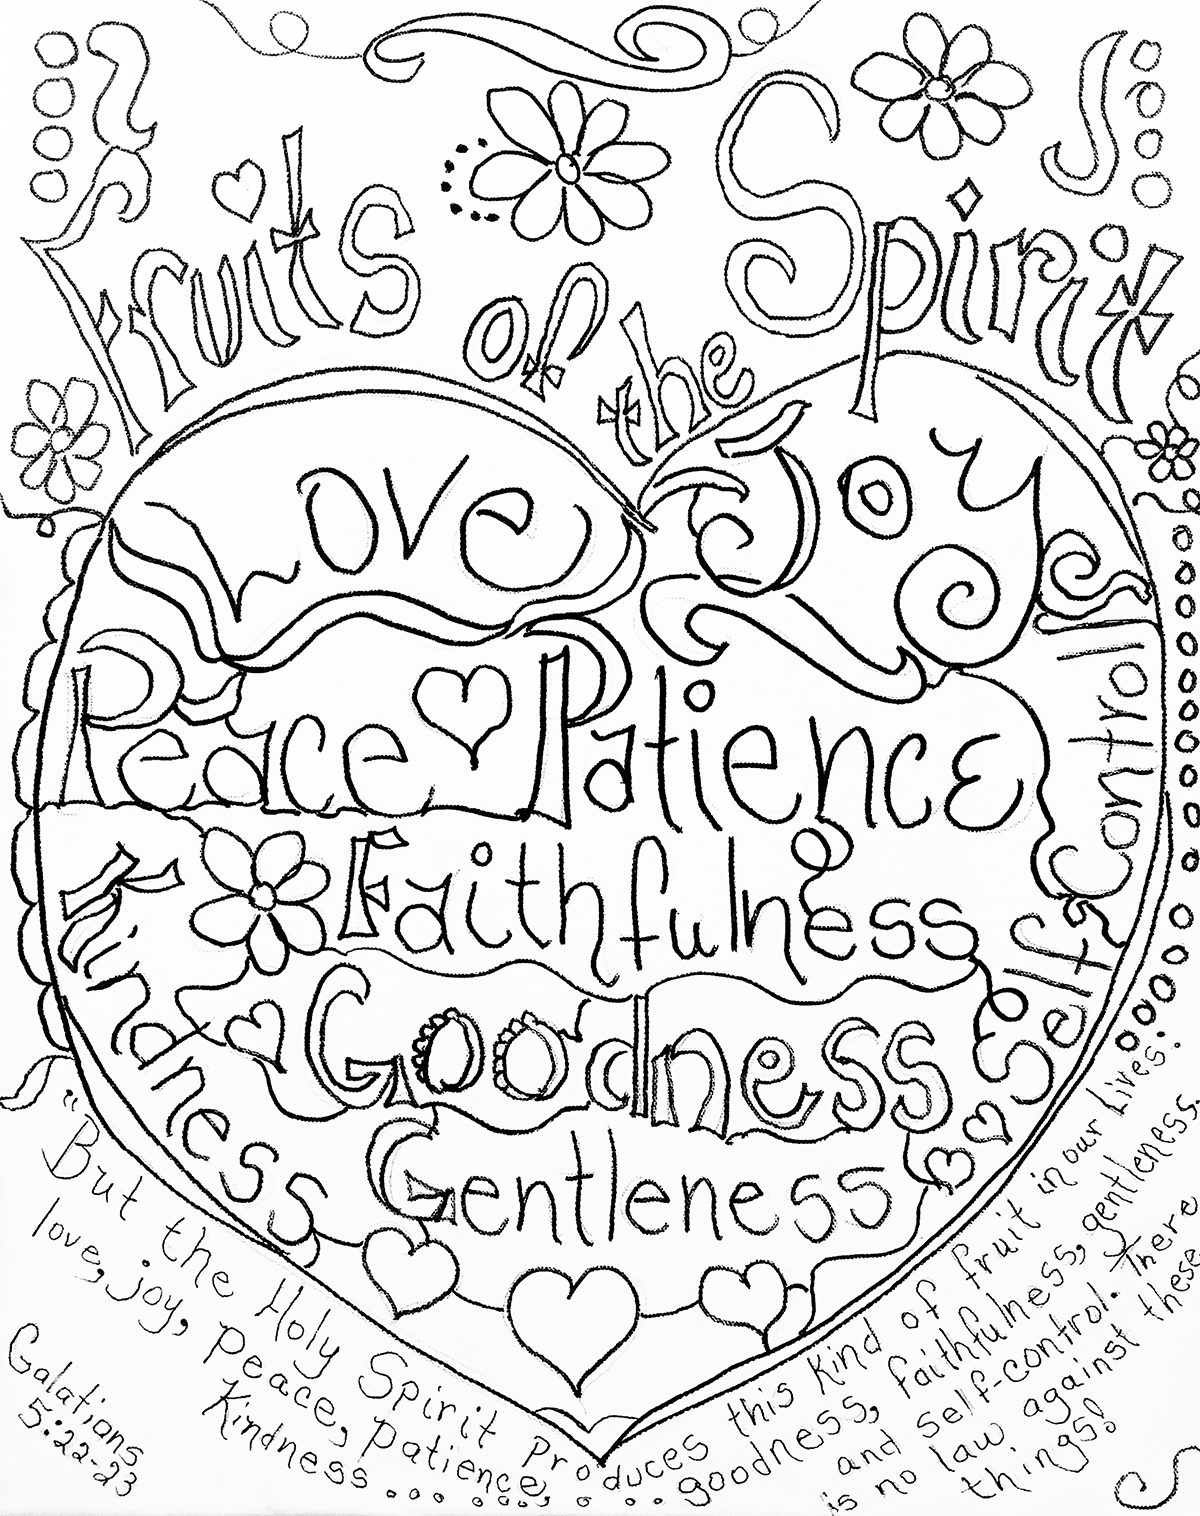 Fruits of the Spirit
Love Joy
Peace Patience
Kindness
Faithfulness
Goodness
Gentleness
Self Control
"But the Holy Spirit produces this kind of fruit in our lives:
love, joy, peace, patience, goodness, faithfulness, gentleness
Kindness... and self-control. There
is no law against these
things!
Galations
5:22-23